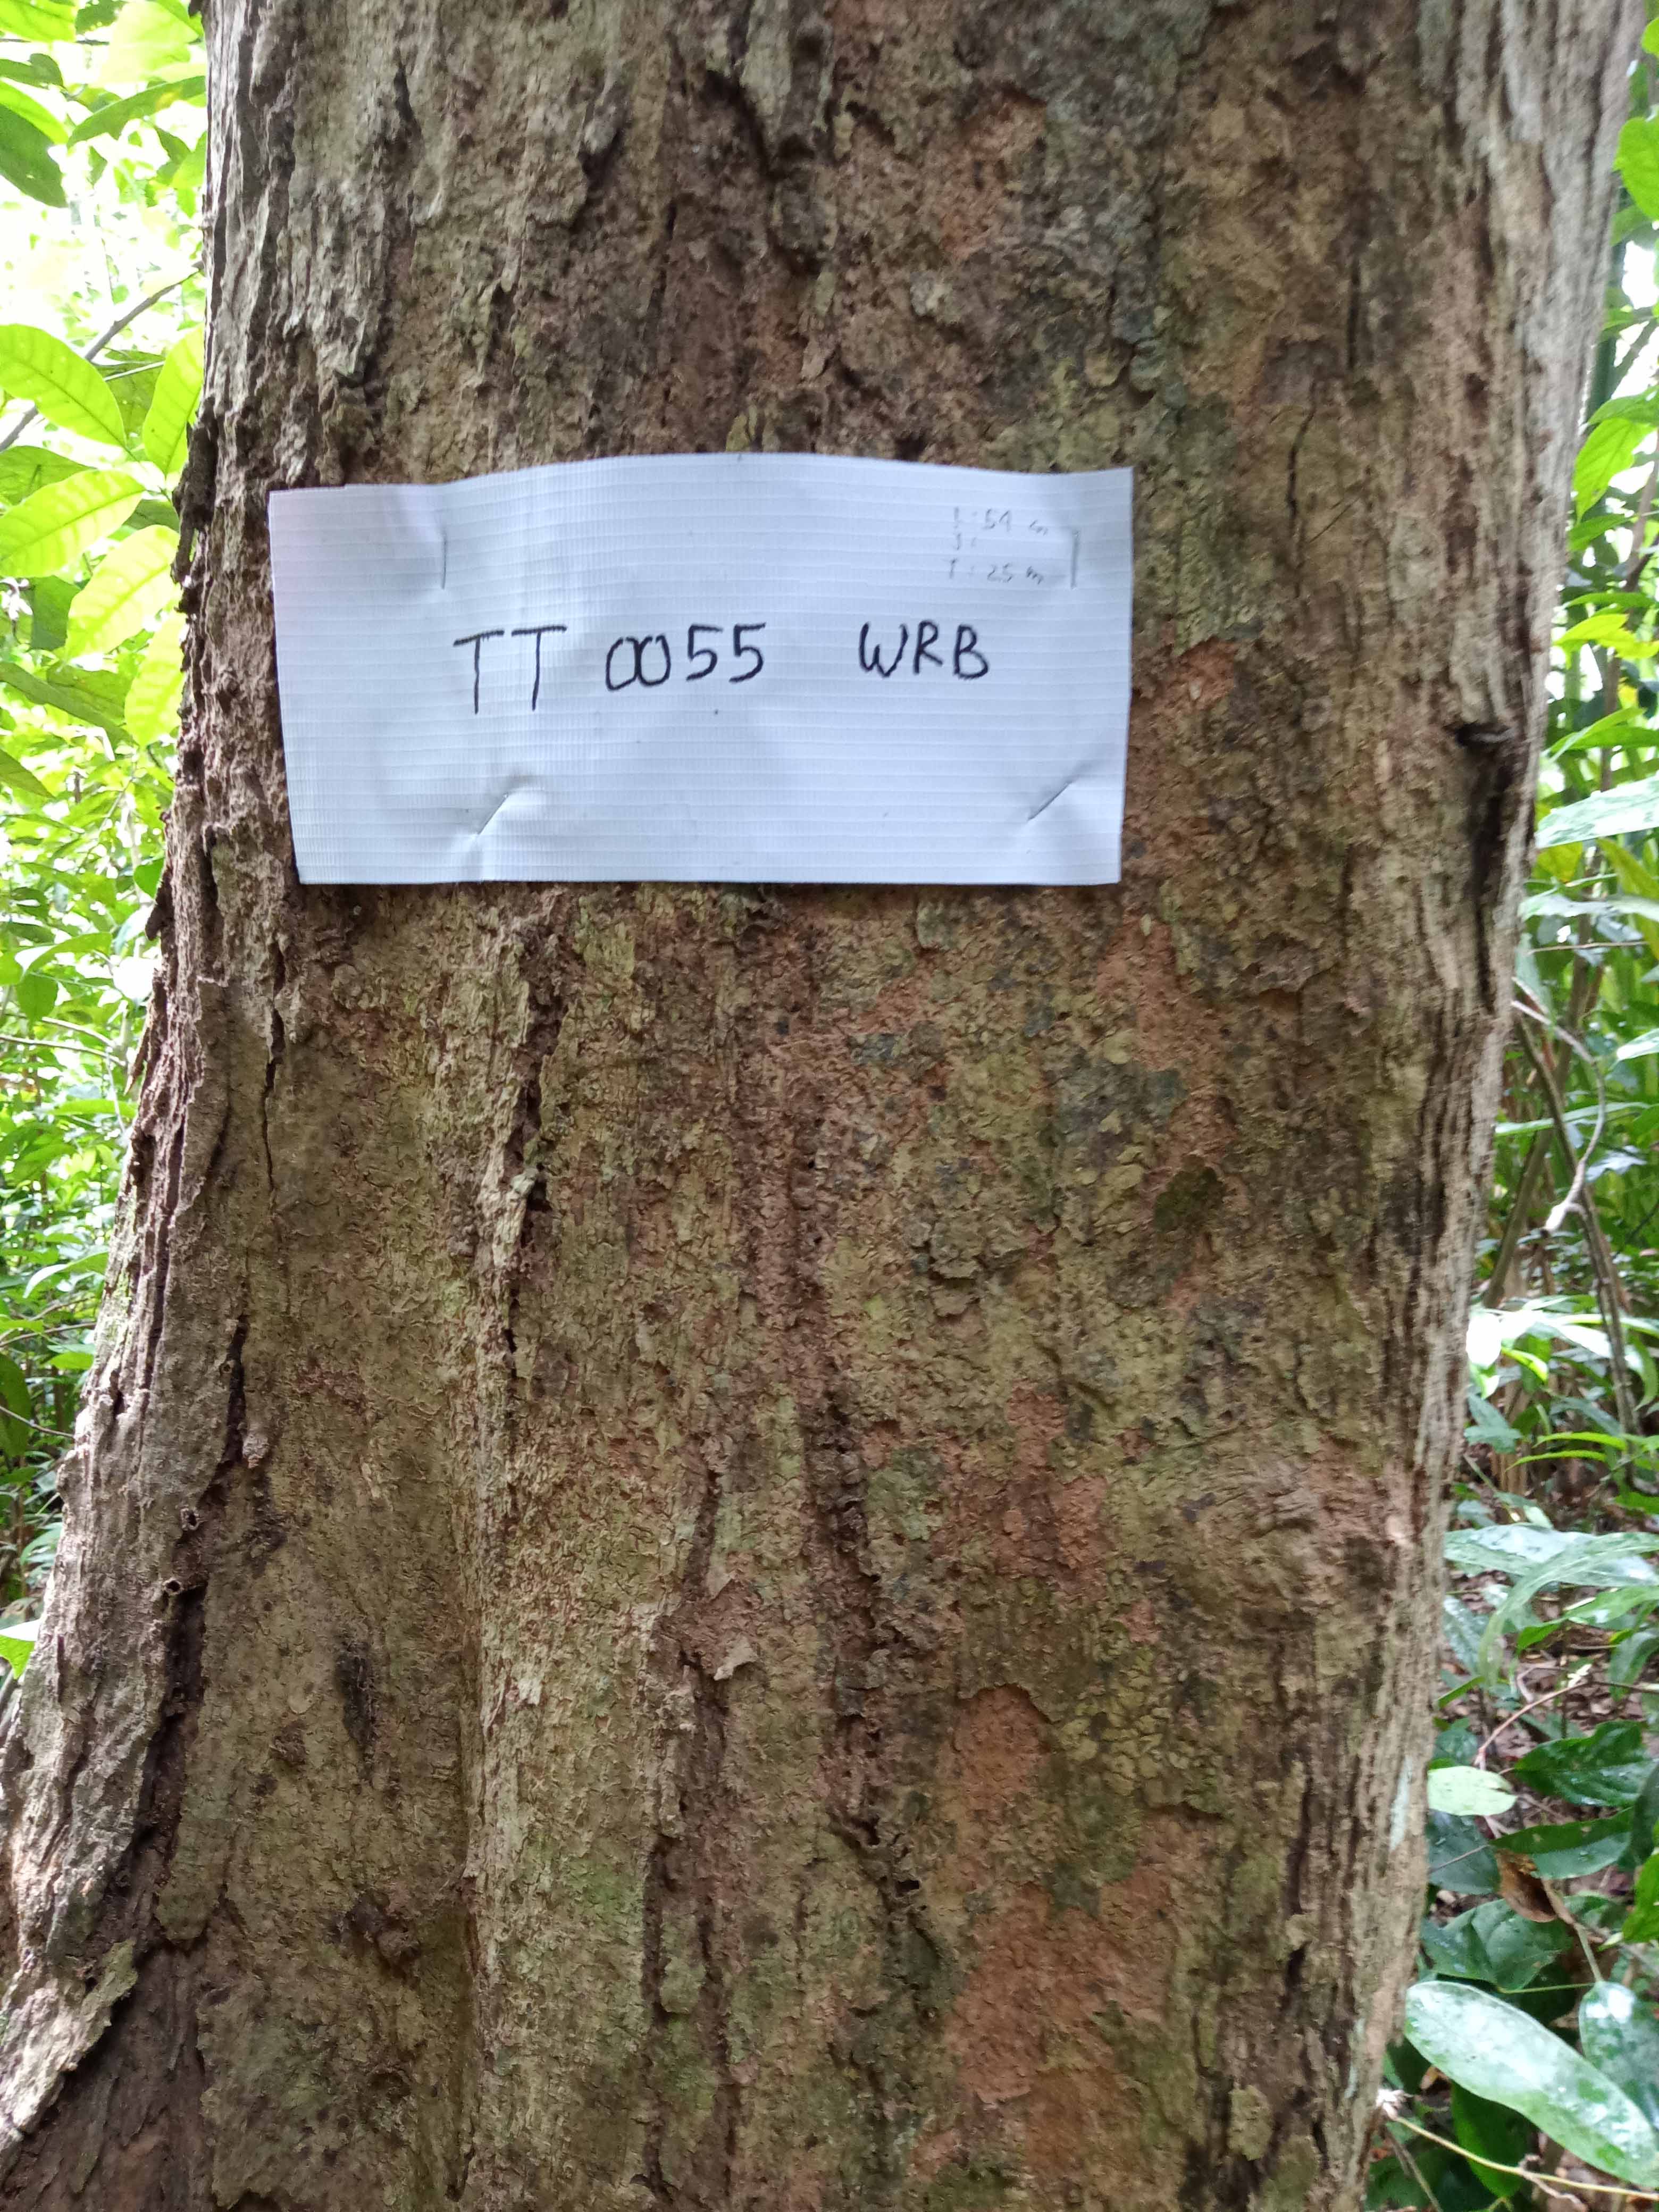 : 54 cm
J :
T : 25 m
TT 0055 WRB